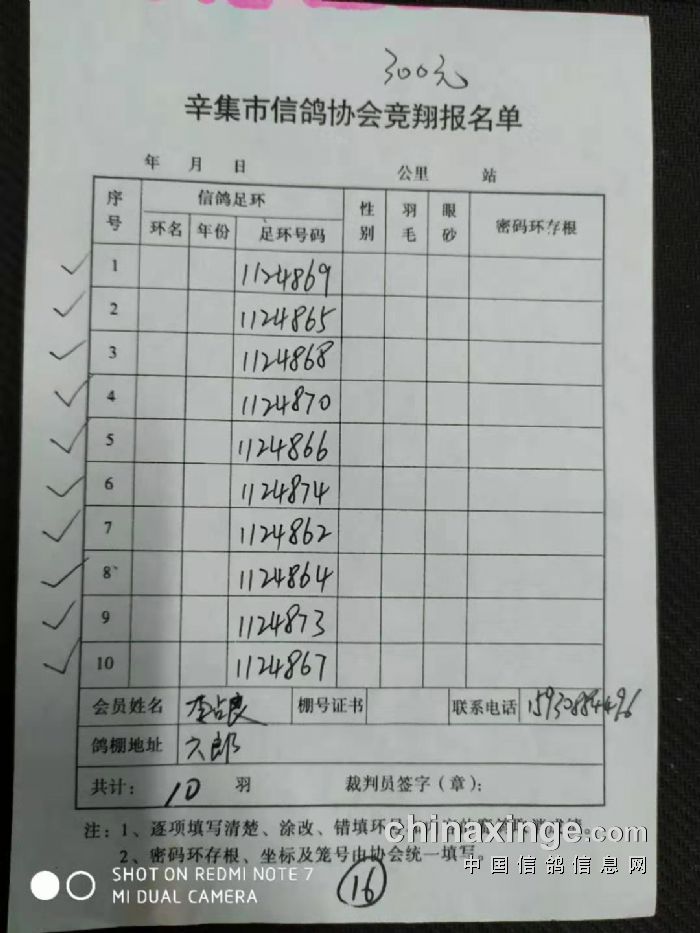 300元
辛集市信鸽协会竞翔报名单
年 月 日 公里 站
序号 信鸽足环 性别 羽毛 眼砂 密码环存根
环名 年份 足环号码
1 1124869
2 1124865
3 1124868
4 1124870
5 1124866
6 1124874
7 1124862
8 1124864
9 1124873
10 1124867
会员姓名 李占良 棚号证书 联系电话
鸽棚地址 六郎
共计: 10 羽 裁判员签字(章):
注:1、逐项填写清楚、涂改、错填环号
2、密码环存根、坐标及笼号由协会统一填写。
16
chinaxinge.com
中国信鸽信息网
SHOT ON REDMI NOTE 7
MI DUAL CAMERA